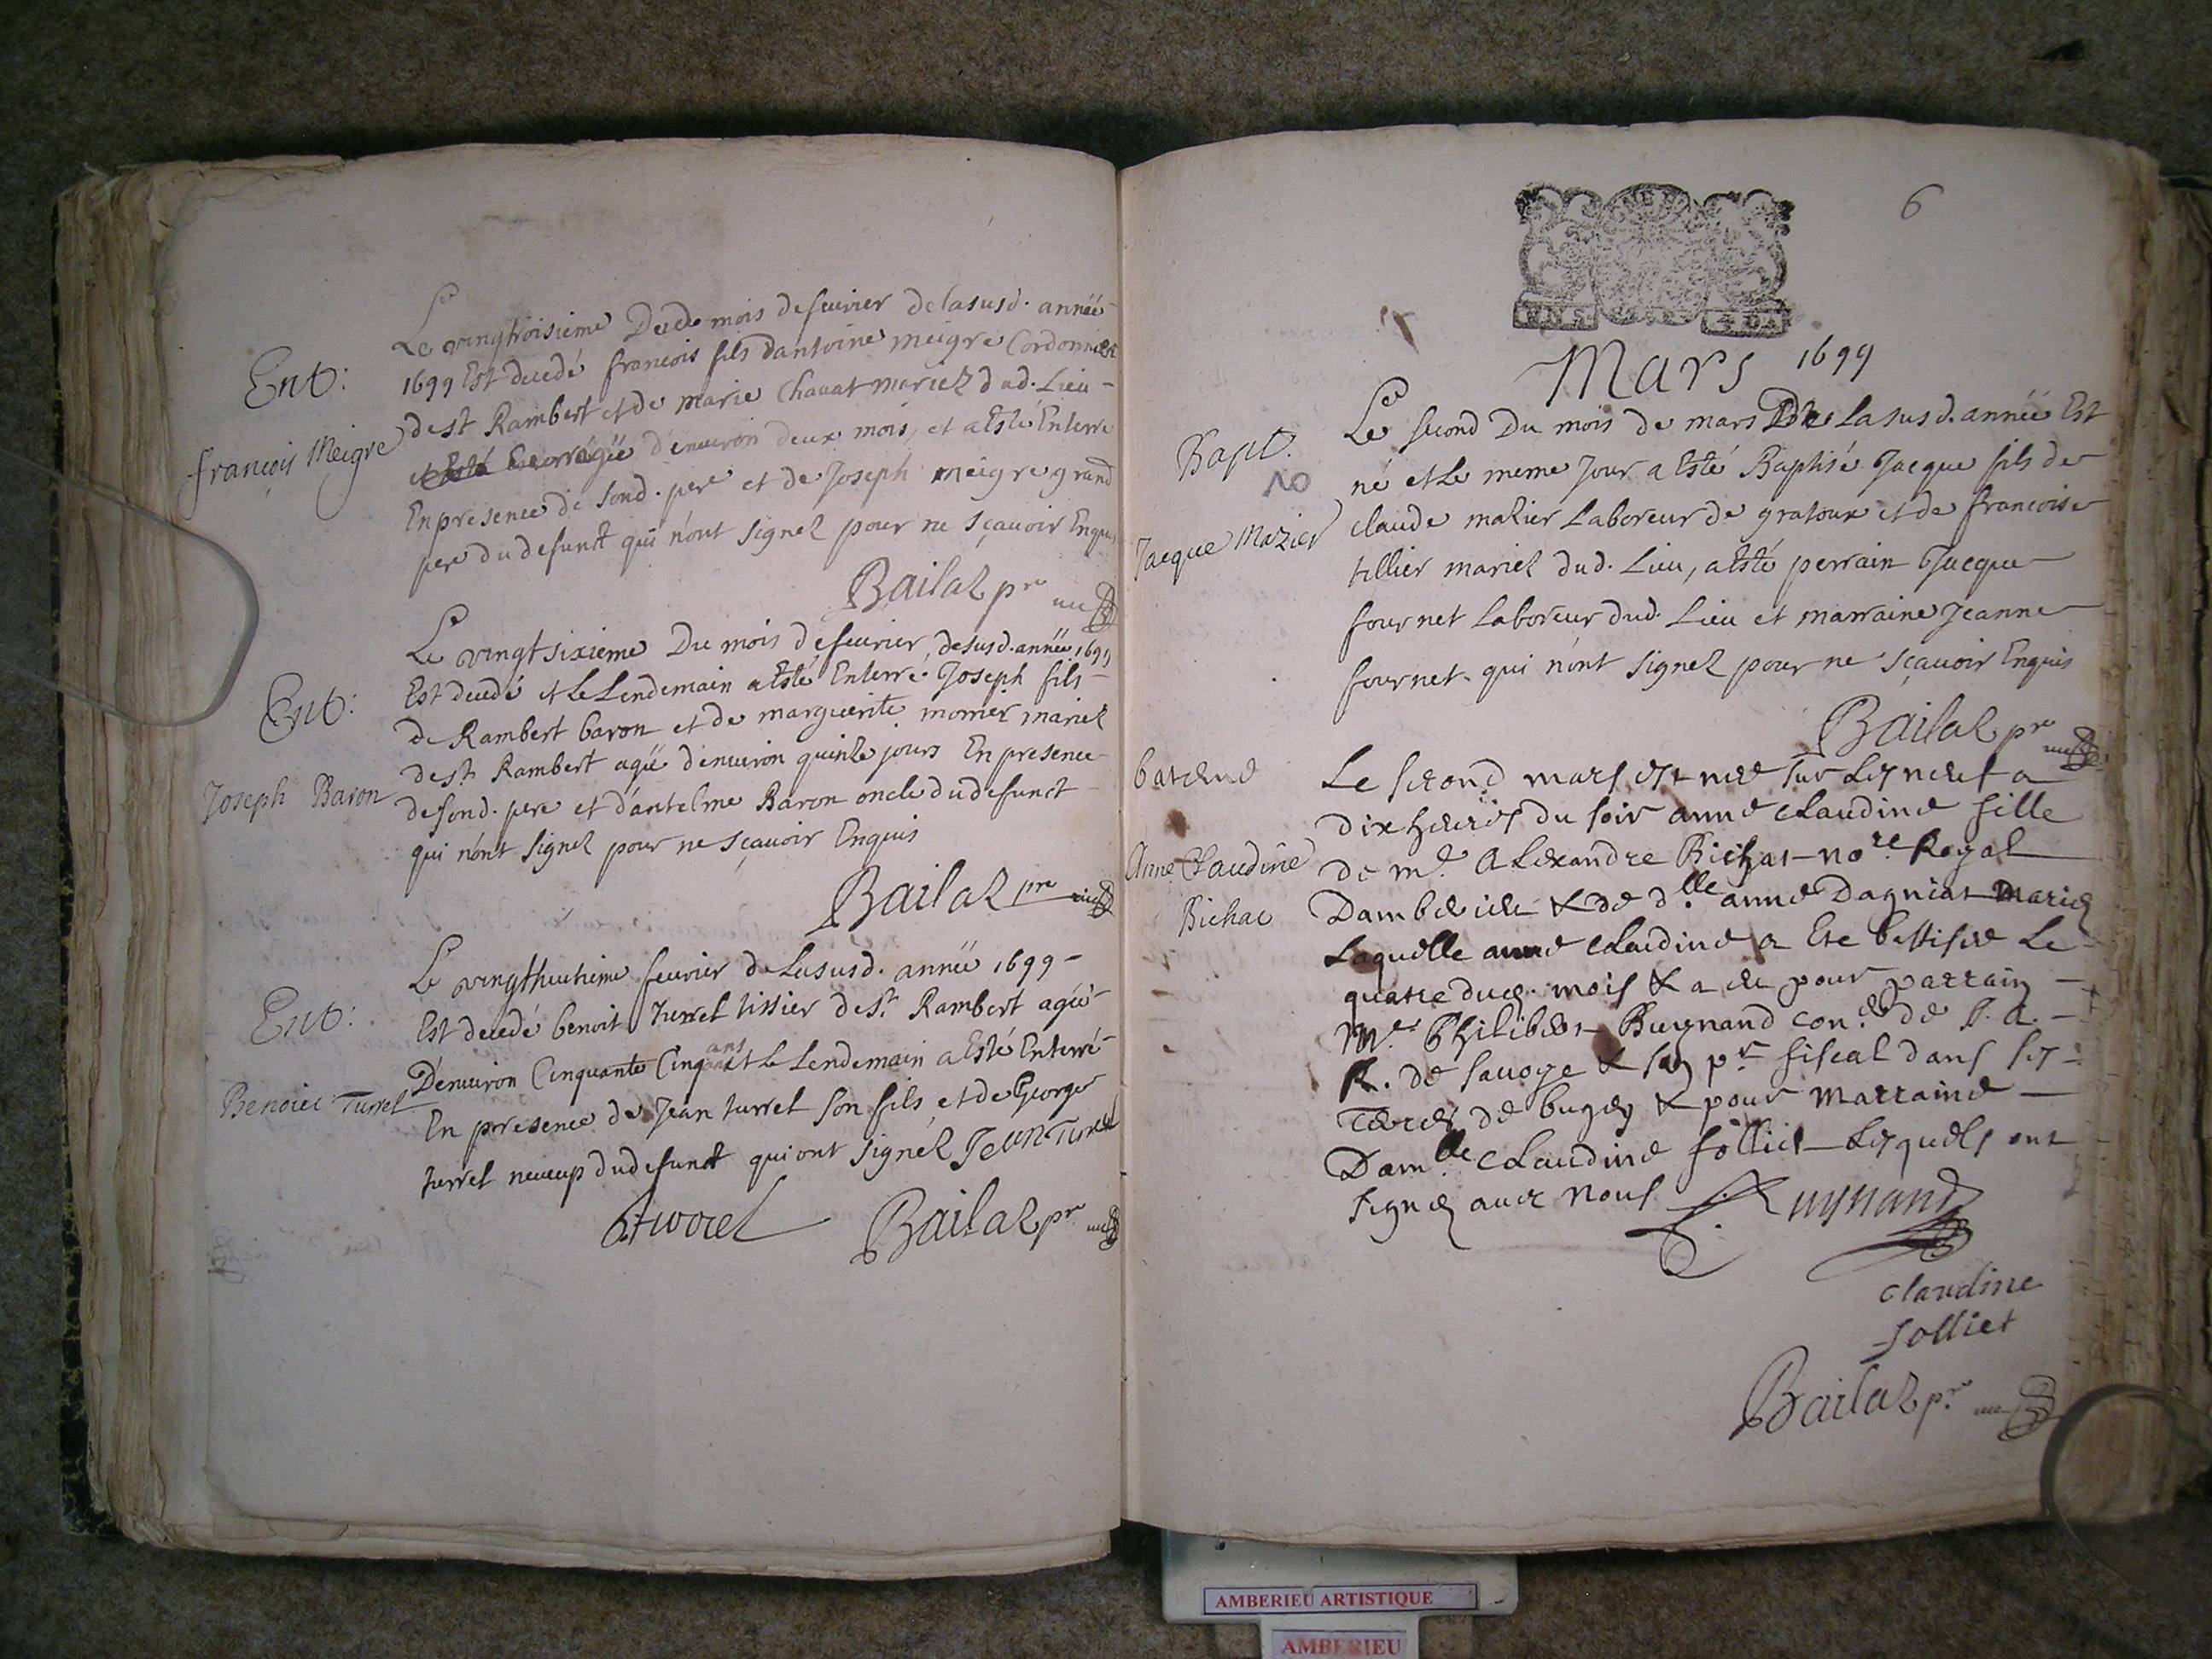 Ent:
françois Meigre
Le vingttroisieme Dudt mois de feurier de la susd. année
1699 Est decedé francois fils Dantoine meigre Cordonnier
de st Rambert et de marie Chauat mariez dud. Lieu
agée d'enuiron deux mois, et a esté Enterré
En presence de sond. pere et de Joseph meigre grand
pere du defunct qui n'ont signez pour ne sçauoir Enquis
Bailaz pre
Ent:
Joseph Baron
Le vingtsixieme Du mois de feurier, de susd. année 1699
Est decedé et Le Lendemain a Esté Enterré Joseph fils
de Rambert baron et de marguerite momer mariez
de st Rambert agée d'enuiron quinze jours En presence
de sond. pere et d'antelme Baron oncle du defunct
qui n'ont signez pour ne sçauoir Enquis
Bailaz pre
Ent:
Benoict Turrel
Le vingthuitieme feurier de La susd. année 1699
Est decedé benoit turrel tissier de St. Rambert agée
D'enuiron Cinquante Cinq ans et Le Lendemain a Esté Enterré
En presence de Jean turrel son fils et de George
turrel neueup du defunct qui ont signéz Jean Turel
Bailaz pre
6
Mars 1699
Bapt.
10
Jacque Mazier
Le second Du mois de mars De La susd. année Est
né et Le meme Jour a Esté Baptisé Jacque fils de
claude mazier Laboreur de gratoux et de francoise
tillier mariez dud. Lieu, a Esté perrain Jacque
fournet Laboreur dud. Lieu et marraine Jeanne
fournet qui n'ont signez pour ne sçauoir Enquis
Bailaz pre
bateme
Anne Claudine
Bichat
Le second mars est nee sur Les neuf a
dix heures du soir anne claudine fille
de me. Alexandre Bichat nore. Royal
Damberieu & de dlle anne Dagniat mariez
Laquelle anne claudine a Ete battisee Le
quatre dud. mois & a eu pour parrain
Me. Philibert Buynand coner. de S. A.
R. de sauoye & son pr fiscal dans ses
Terres de bugey & pour marraine
Damlle claudine folliet Lesquels ont
signez auec nous Buynand
claudine
folliet
Bailaz pr.
AMBERIEU ARTISTIQUE
AMBERIEU